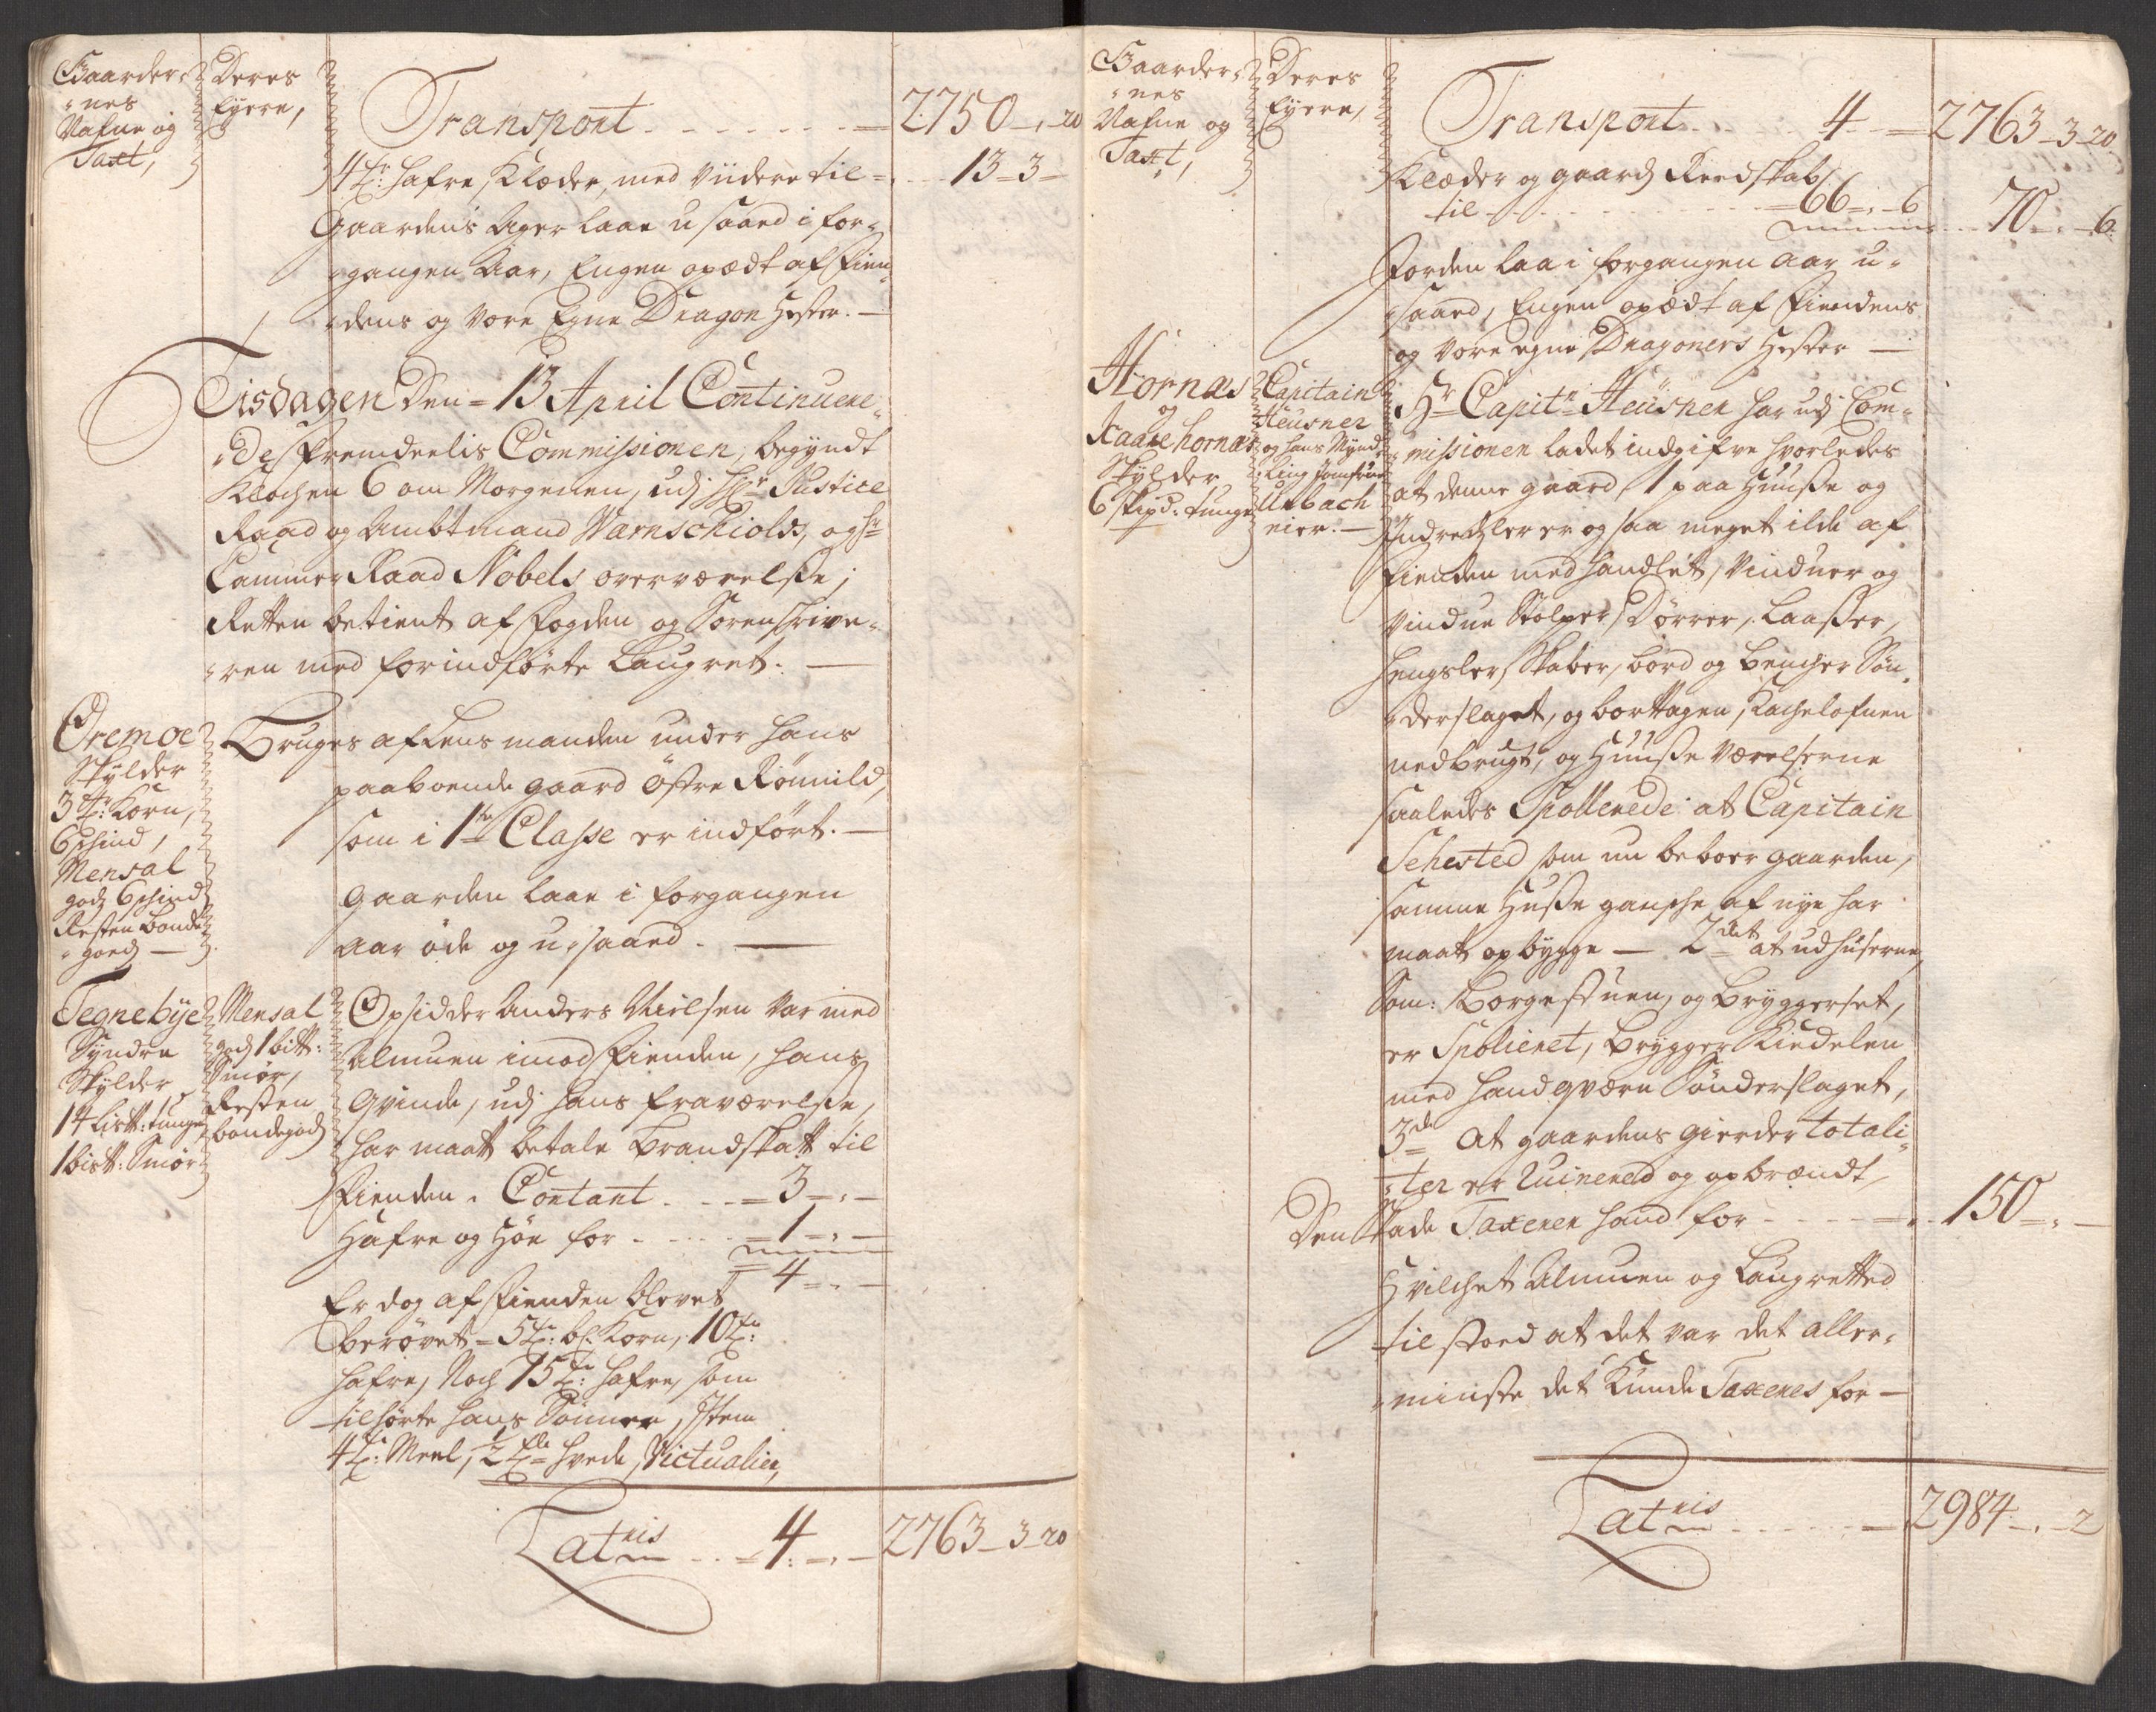 Gaarder-
-nes
Nafne og
Taxt,
Deres
Eyere,
Transport - - - - - - - = 2750 - „ - 20
4 Tr: hafre, Klæder, med viidere til = „ - - 13 - 3 -
Gaardens Ager laae u saaed i for-
-gangen Aar, Engen opædt af Fien-
-dens og Vore Egne Dragon Hester. —
Tisdagen den = 13 April Continuere-
-de fremdeelis Commissionen, begyndt
Klochen 6 om Morgenen, udj Hr Justice
Raad og Ambtmand Warnschiolds, og Hr
Cammer Raad Nobels overværelsse;
Retten betient af Fogden og Sorenschrive-
-ren med forindførte Laugret. —
Oremoe
Skylder
3 Tr: Korn,
6 schind,
Mensal
godz 6 schind
Resten bonde
-goedz —
Bruges af Lensmanden under hans
paaboende gaard østre Rømmild,
som i 1te Classe er indført. —
Gaarden laae i forgangen
Aar øde og u-saaed. —
Tegnebÿe
Syndre
Skylder
14 List: tunge
1 bist: Smør
Mensal
godz 1 bitt:
Smør,
Resten
bondegodz
Opsidder Anders Nielsen var med
Almuen imod Fienden, hans
Qvinde, udj hans fraværelsse,
har maatt betale Brandskatt til
Fienden. Contant - - = 3 - „ -
Hafre og Høe for - - - - = 1 - „ -
= 4 = „ -
Er dog af Fienden blevet
berøvet = 5 Tr: bl: Korn, 10 Tr:
hafre, Noch 15 Tr: hafre, som
tilhørte hans Sønner, Item
4 Tr: Meel, ½ Tde hvede, Victualier,
Latris - - = 4: = „ - 2763 - 3 - 20
Gaarder-
-nes
Nafne og
Taxt,
Deres
Eyere,
Transport - - - 4 - = 2763 - 3 - 20
Klæder og gaardz Reedskab
til - - - - - - - = 66 = „ - 6
- - 70 - „ - 6
Jorden laa i forgangen Aar u-
-saaed, Engen opædt af Fiendens
og Vore egne Dragoners Hester —
Hornæs
og
Kaatehornæs
Skylder
6 skipd: tunge
Capitain
Heusner
og hans Mynd-
-ling Jomfrue
Urbach
eier. —
Hr Capitn Heusner har udj Com-
-missionen ladet indgifve hvorledes
at denne gaard, 1 paa Huusse og
Indredzler er og saa meget ilde af
Fienden medhandlet, Vinduer og
Vindue Stolper, Dørrer, Laasser,
Hengsler, Skaber, bord og bencher Søn-
-derslaget, og borttagen, Kachelofnen
nedbrugt, og Huusse Værelserne
saaledes Spollerede: at Capitain
Sehested som nu beboer gaarden,
samme Husse gansche af nye har
maatt opbygge — 2det at udhuserne,
Som: Borgestuen, og Bryggerset,
er Spolieret, Brygger Kiedelen
med handqværn Sønderslaget,
3de At gaardens gierder totali-
-ter er Ruinered og opbrændt,
Den Skade Taxerer hand for - - - - = „ - 150 - „ -
Hvilchet Almuen og Laugretted
tilstoed at det var det aller-
-minste det Kunde Taxeres for —
Latris - - - - - = 2984 - „ - 2